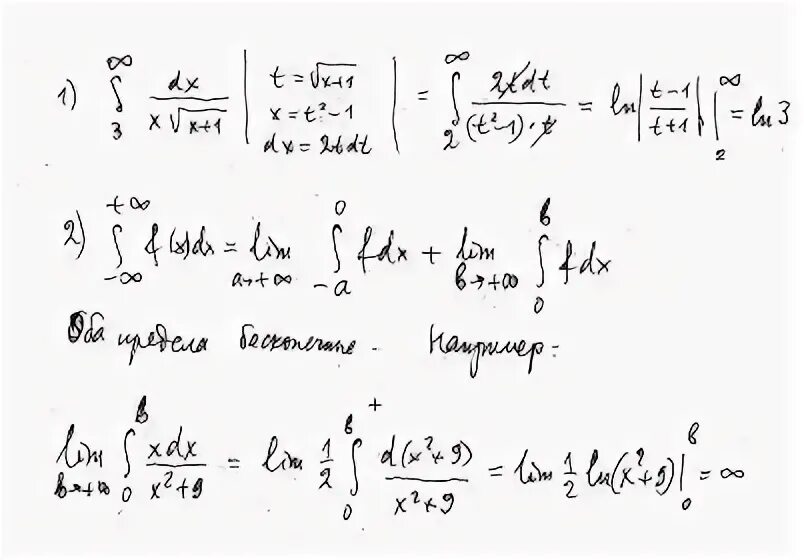 1) ∫_3^∞ dx / (x√(x+1)) | t = √(x+1), x = t² − 1, dx = 2tdt | = ∫_2^∞ 2tdt / ((t²−1)·t) = ln |(t−1)/(t+1)| |_2^∞ = ln 3
2) ∫_{−∞}^{+∞} f(x)dx = lim_{a→+∞} ∫_{−a}^0 fdx + lim_{b→+∞} ∫_0^b fdx
Оба предела бесконечные. Например:
lim_{b→+∞} ∫_0^b xdx / (x²+9) = lim 1/2 ∫_0^b d(x²+9) / (x²+9) = lim 1/2 ln(x²+9) |_0^b = ∞